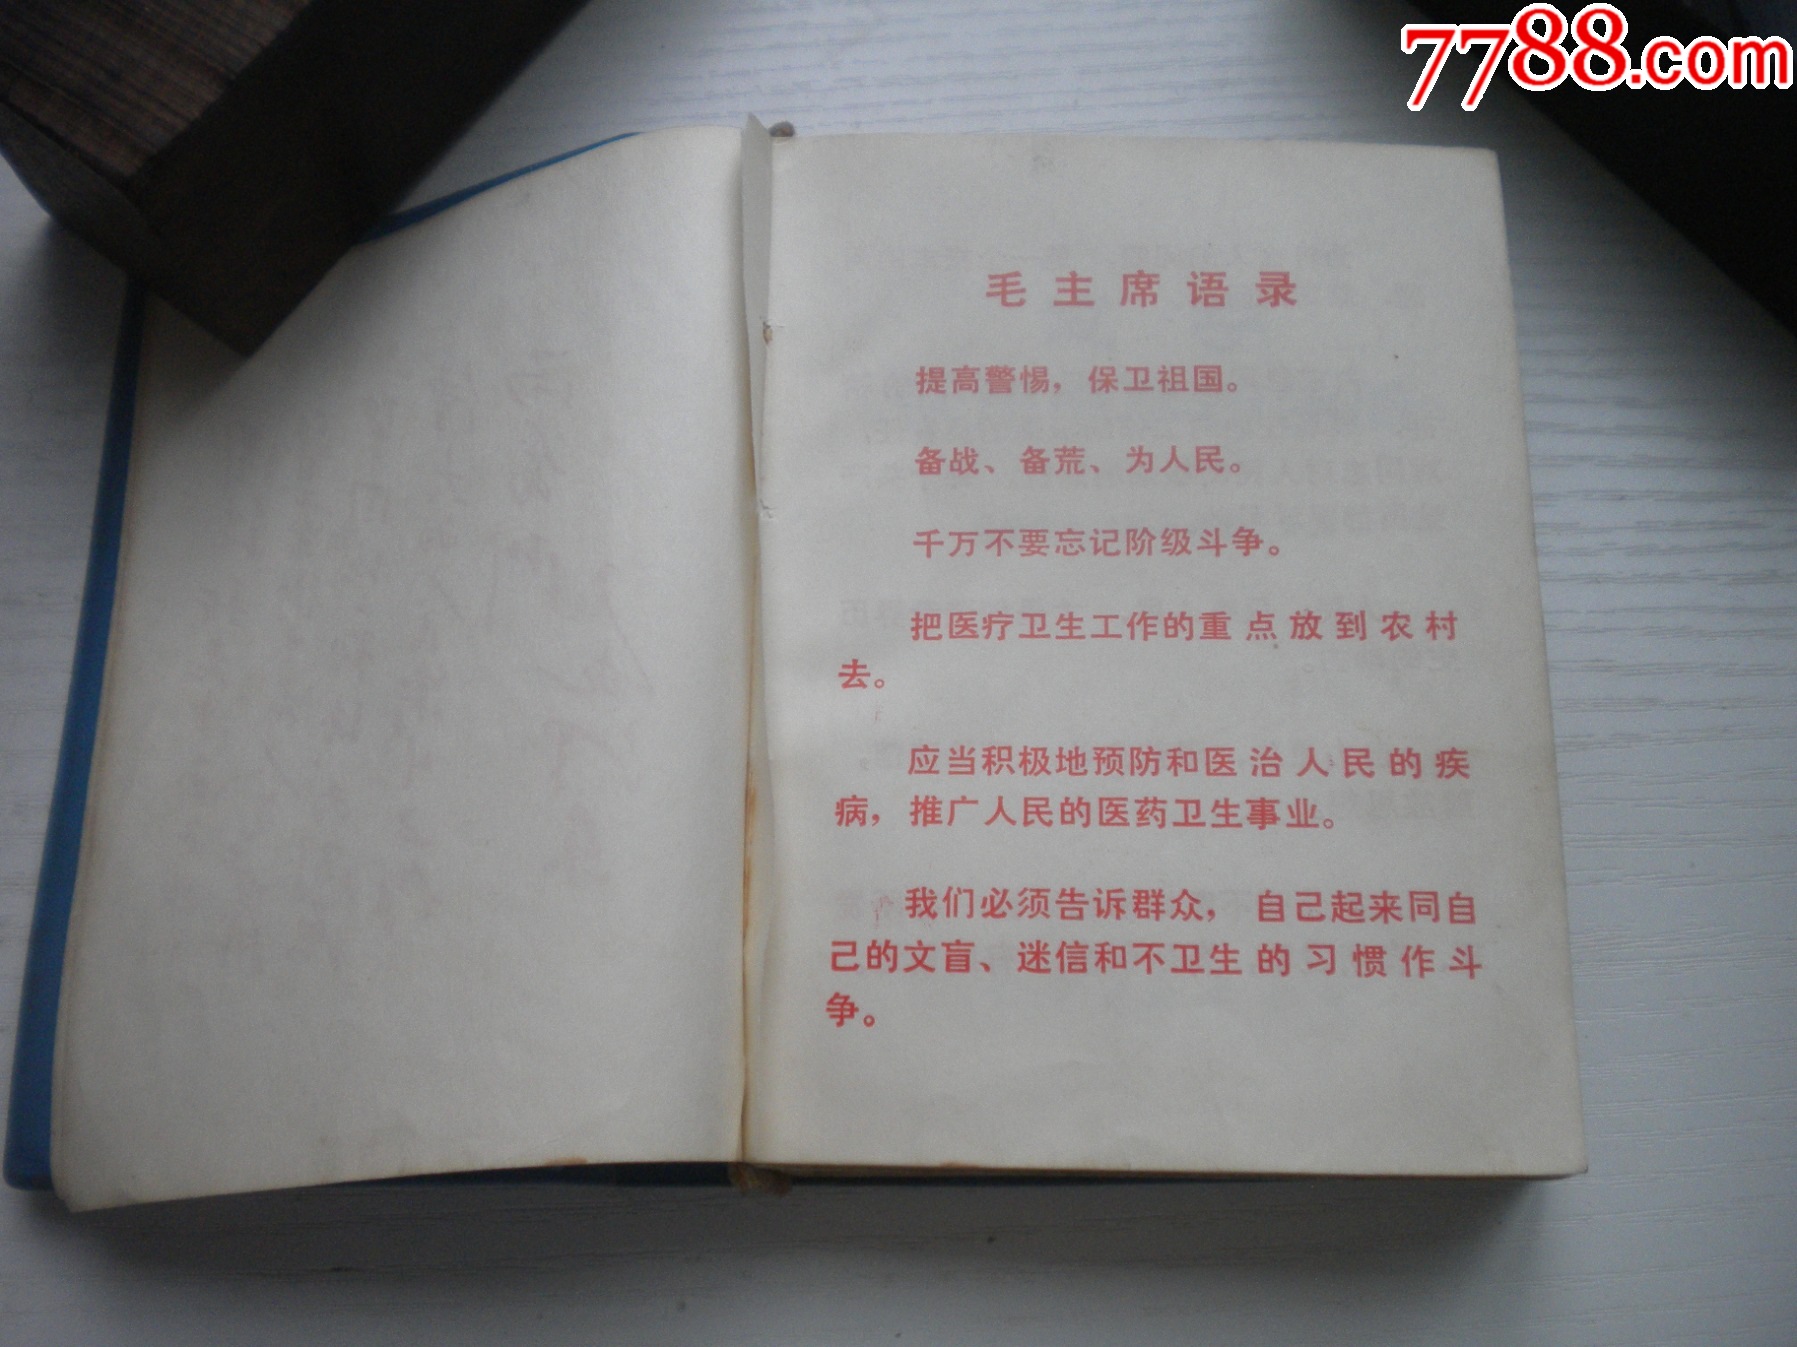 7788.com
毛主席语录
提高警惕，保卫祖国。
备战、备荒、为人民。
千万不要忘记阶级斗争。
把医疗卫生工作的重点放到农村
去。
应当积极地预防和医治人民的疾
病，推广人民的医药卫生事业。
我们必须告诉群众，自己起来同自
己的文盲、迷信和不卫生的习惯作斗
争。